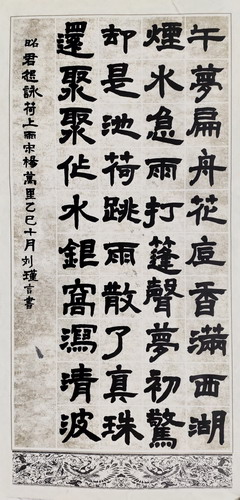 午夢扁舟花底香滿西湖
煙水急雨打蓬聲夢初驚
却是池荷跳雨散了真珠
還聚聚作水銀窩瀉清波
昭君怨詠荷上雨宋楊萬里乙巳十月刘瑾言書